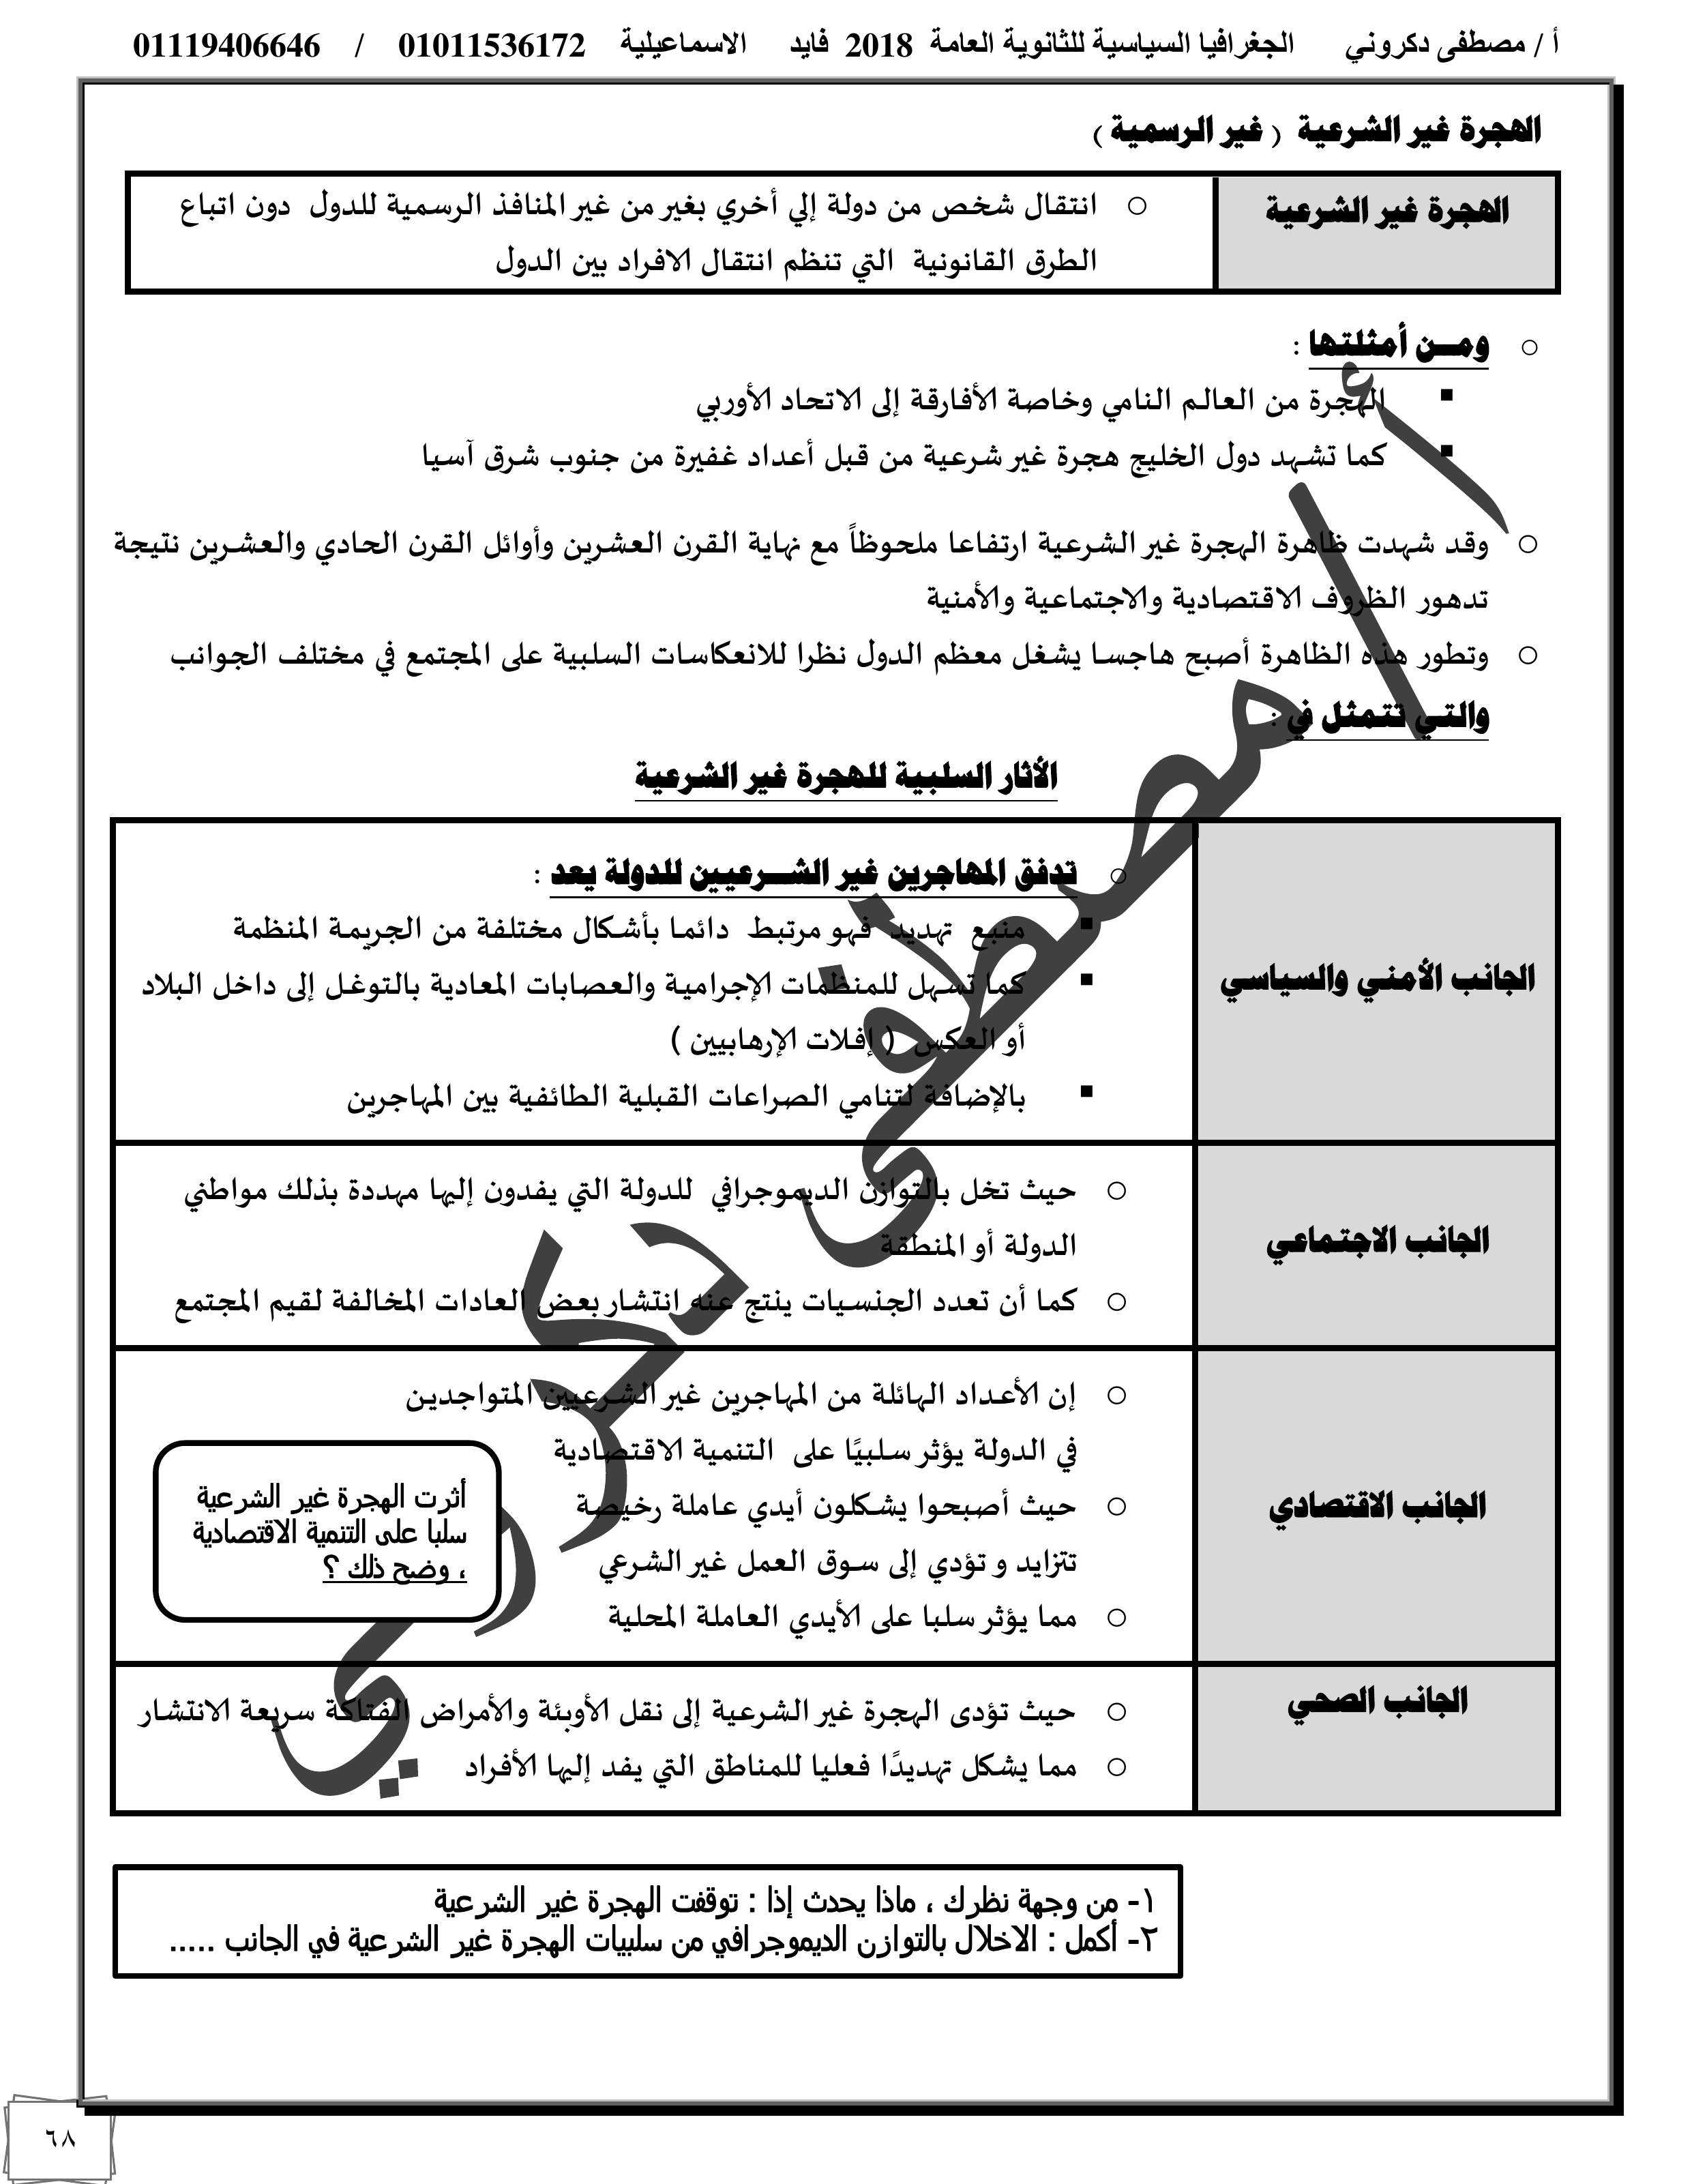 أ / مصطفى دكروني الجغرافيا السياسية للثانوية العامة 2018 فايد الاسماعيلية 01011536172 / 01119406646
الهجرة غير الشرعية ( غير الرسمية )
الهجرة غير الشرعية
○ انتقال شخص من دولة إلي أخري بغير من غير المنافذ الرسمية للدول دون اتباع
الطرق القانونية التي تنظم انتقال الافراد بين الدول
○ ومـــن أمثلتها :
▪ الهجرة من العالم النامي وخاصة الأفارقة إلى الاتحاد الأوربي
▪ كما تشهد دول الخليج هجرة غير شرعية من قبل أعداد غفيرة من جنوب شرق آسيا
○ وقد شهدت ظاهرة الهجرة غير الشرعية ارتفاعا ملحوظاً مع نهاية القرن العشرين وأوائل القرن الحادي والعشرين نتيجة
تدهور الظروف الاقتصادية والاجتماعية والأمنية
○ وتطور هذه الظاهرة أصبح هاجسا يشغل معظم الدول نظرا للانعكاسات السلبية على المجتمع في مختلف الجوانب
والتي تتمثل في :
الأثار السلبية للهجرة غير الشرعية
الجانب الأمني والسياسي
○ تدفق المهاجرين غير الشـــرعيين للدولة يعد :
▪ منبع تهديد فهو مرتبط دائما بأشكال مختلفة من الجريمة المنظمة
▪ كما تسهل للمنظمات الإجرامية والعصابات المعادية بالتوغل إلى داخل البلاد
أو العكس ( إفلات الإرهابيين )
▪ بالإضافة لتنامي الصراعات القبلية الطائفية بين المهاجرين
الجانب الاجتماعي
○ حيث تخل بالتوازن الديموجرافي للدولة التي يفدون إليها مهددة بذلك مواطني
الدولة أو المنطقة
○ كما أن تعدد الجنسيات ينتج عنه انتشار بعض العادات المخالفة لقيم المجتمع
الجانب الاقتصادي
○ إن الأعداد الهائلة من المهاجرين غير الشرعيين المتواجدين
في الدولة يؤثر سلبيًا على التنمية الاقتصادية
○ حيث أصبحوا يشكلون أيدي عاملة رخيصة
تتزايد و تؤدي إلى سوق العمل غير الشرعي
○ مما يؤثر سلبا على الأيدي العاملة المحلية
أثرت الهجرة غير الشرعية
سلبا على التنمية الاقتصادية
، وضح ذلك ؟
الجانب الصحي
○ حيث تؤدى الهجرة غير الشرعية إلى نقل الأوبئة والأمراض الفتاكة سريعة الانتشار
○ مما يشكل تهديدًا فعليا للمناطق التي يفد إليها الأفراد
١- من وجهة نظرك ، ماذا يحدث إذا : توقفت الهجرة غير الشرعية
٢- أكمل : الاخلال بالتوازن الديموجرافي من سلبيات الهجرة غير الشرعية في الجانب .....
٦٨
أ / مصطفى دكروني